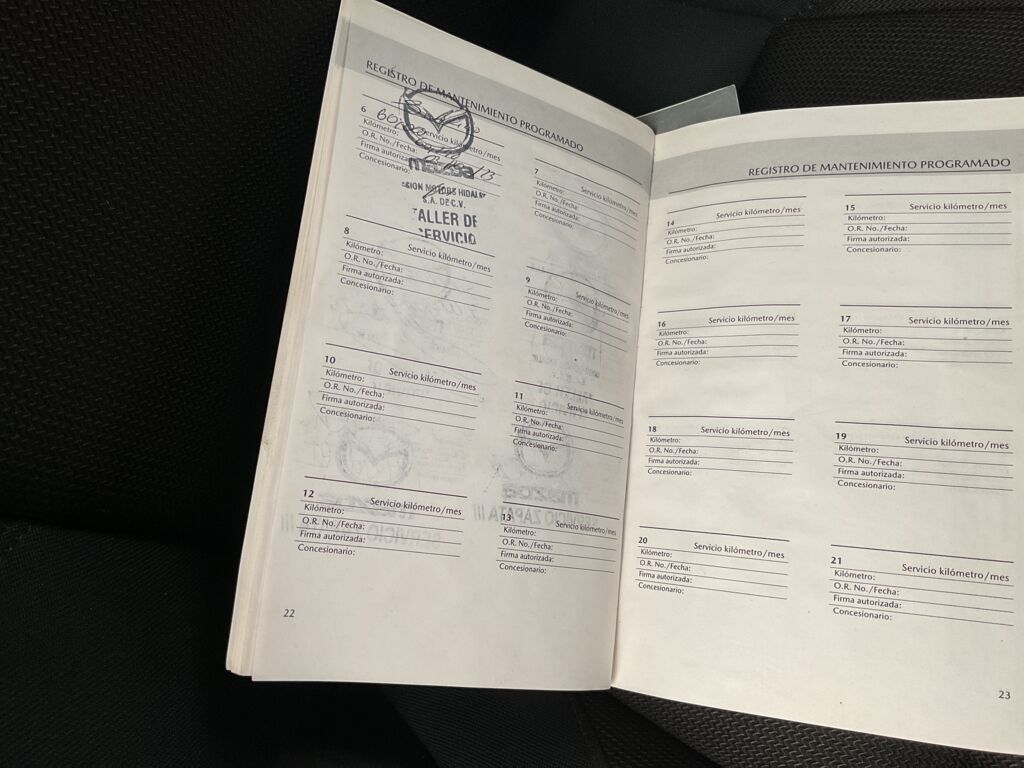 REGISTRO DE MANTENIMIENTO PROGRAMADO
6 Servicio kilómetro/mes
Kilómetro:
O.R. No./Fecha:
Firma autorizada:
Concesionario:
mazda
MOTORS HIDAL
S.A. DE C.V.
TALLER DE
SERVICIO
7 Servicio kilómetro/mes
Kilómetro:
O.R. No./Fecha:
Firma autorizada:
Concesionario:
8 Servicio kilómetro/mes
Kilómetro:
O.R. No./Fecha:
Firma autorizada:
Concesionario:
9 Servicio kilómetro/mes
Kilómetro:
O.R. No./Fecha:
Firma autorizada:
Concesionario:
10 Servicio kilómetro/mes
Kilómetro:
O.R. No./Fecha:
Firma autorizada:
Concesionario:
11 Servicio kilómetro/mes
Kilómetro:
O.R. No./Fecha:
Firma autorizada:
Concesionario:
12 Servicio kilómetro/mes
Kilómetro:
O.R. No./Fecha:
Firma autorizada:
Concesionario:
13 Servicio kilómetro/mes
Kilómetro:
O.R. No./Fecha:
Firma autorizada:
Concesionario:
22
REGISTRO DE MANTENIMIENTO PROGRAMADO
14 Servicio kilómetro/mes
Kilómetro:
O.R. No./Fecha:
Firma autorizada:
Concesionario:
15 Servicio kilómetro/mes
Kilómetro:
O.R. No./Fecha:
Firma autorizada:
Concesionario:
16 Servicio kilómetro/mes
Kilómetro:
O.R. No./Fecha:
Firma autorizada:
Concesionario:
17 Servicio kilómetro/mes
Kilómetro:
O.R. No./Fecha:
Firma autorizada:
Concesionario:
18 Servicio kilómetro/mes
Kilómetro:
O.R. No./Fecha:
Firma autorizada:
Concesionario:
19 Servicio kilómetro/mes
Kilómetro:
O.R. No./Fecha:
Firma autorizada:
Concesionario:
20 Servicio kilómetro/mes
Kilómetro:
O.R. No./Fecha:
Firma autorizada:
Concesionario:
21 Servicio kilómetro/mes
Kilómetro:
O.R. No./Fecha:
Firma autorizada:
Concesionario:
23